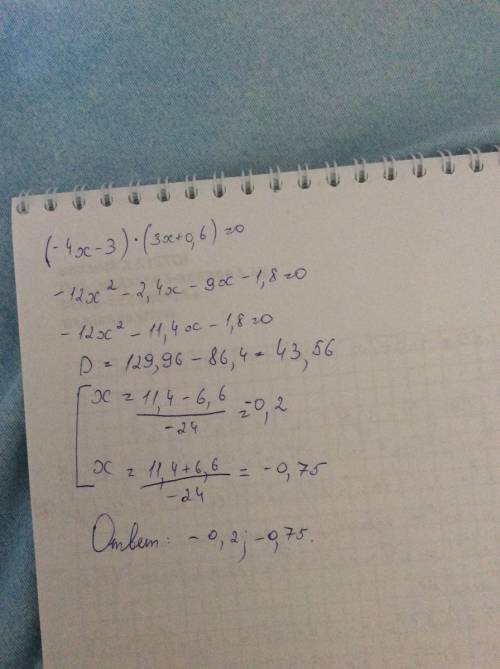 (-4x-3)·(3x+0,6)=0
-12x² - 2,4x - 9x - 1,8=0
-12x² - 11,4x - 1,8=0
D = 129,96 - 86,4 = 43,56
x = 11,4 - 6,6 / -24 = -0,2
x = 11,4 + 6,6 / -24 = -0,75
Ответ: -0,2; -0,75.